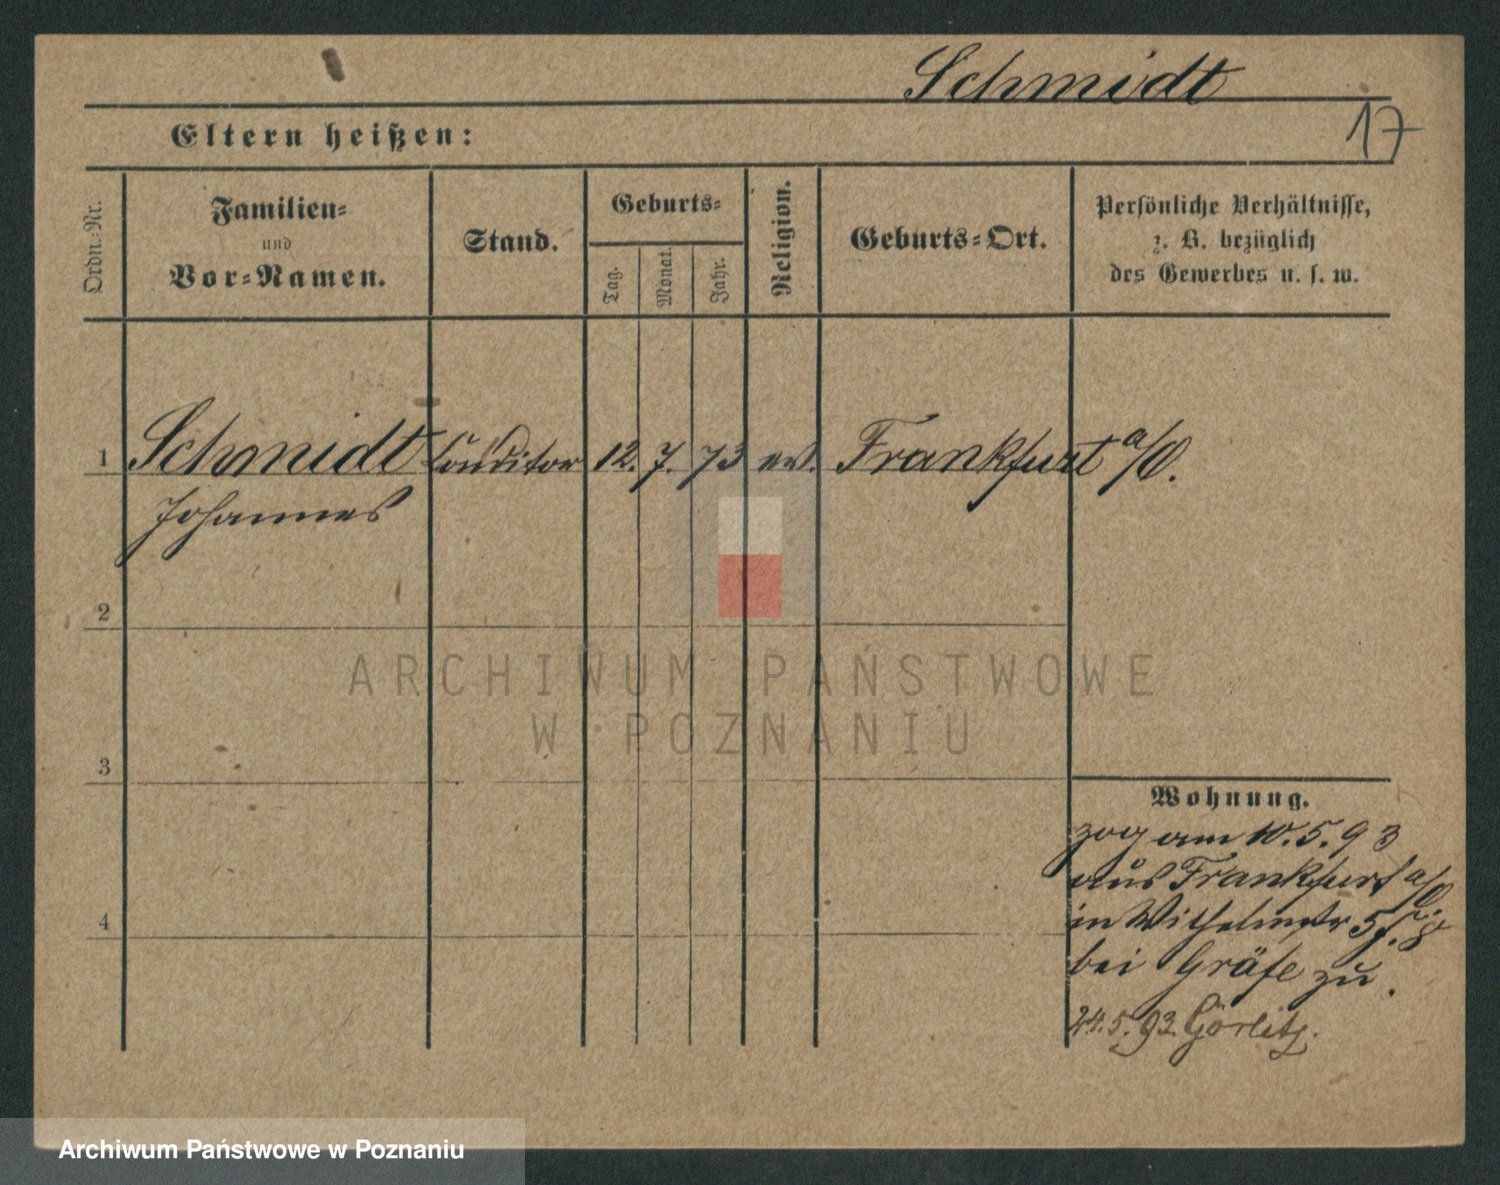 Schmidt
17
Eltern heißen:
Ordn.-Nr.
Familien-
und
Vor-Namen.
Stand.
Geburts-
Tag.
Monat.
Jahr.
Religion.
Geburts-Ort.
Persönliche Verhältnisse,
z. B. bezüglich
des Gewerbes u. s. w.
1 Schmidt Conditor 12. 7. 73 ev. Frankfurt a/O.
Johannes
2
3
4
ARCHIWUM PAŃSTWOWE
W POZNANIU
Wohnung.
zog am 10.5.93
aus Frankfurt a/O.
in Wilhelmstr 5
bei Gräfe zu.
24.5.93 Görlitz.
Archiwum Państwowe w Poznaniu